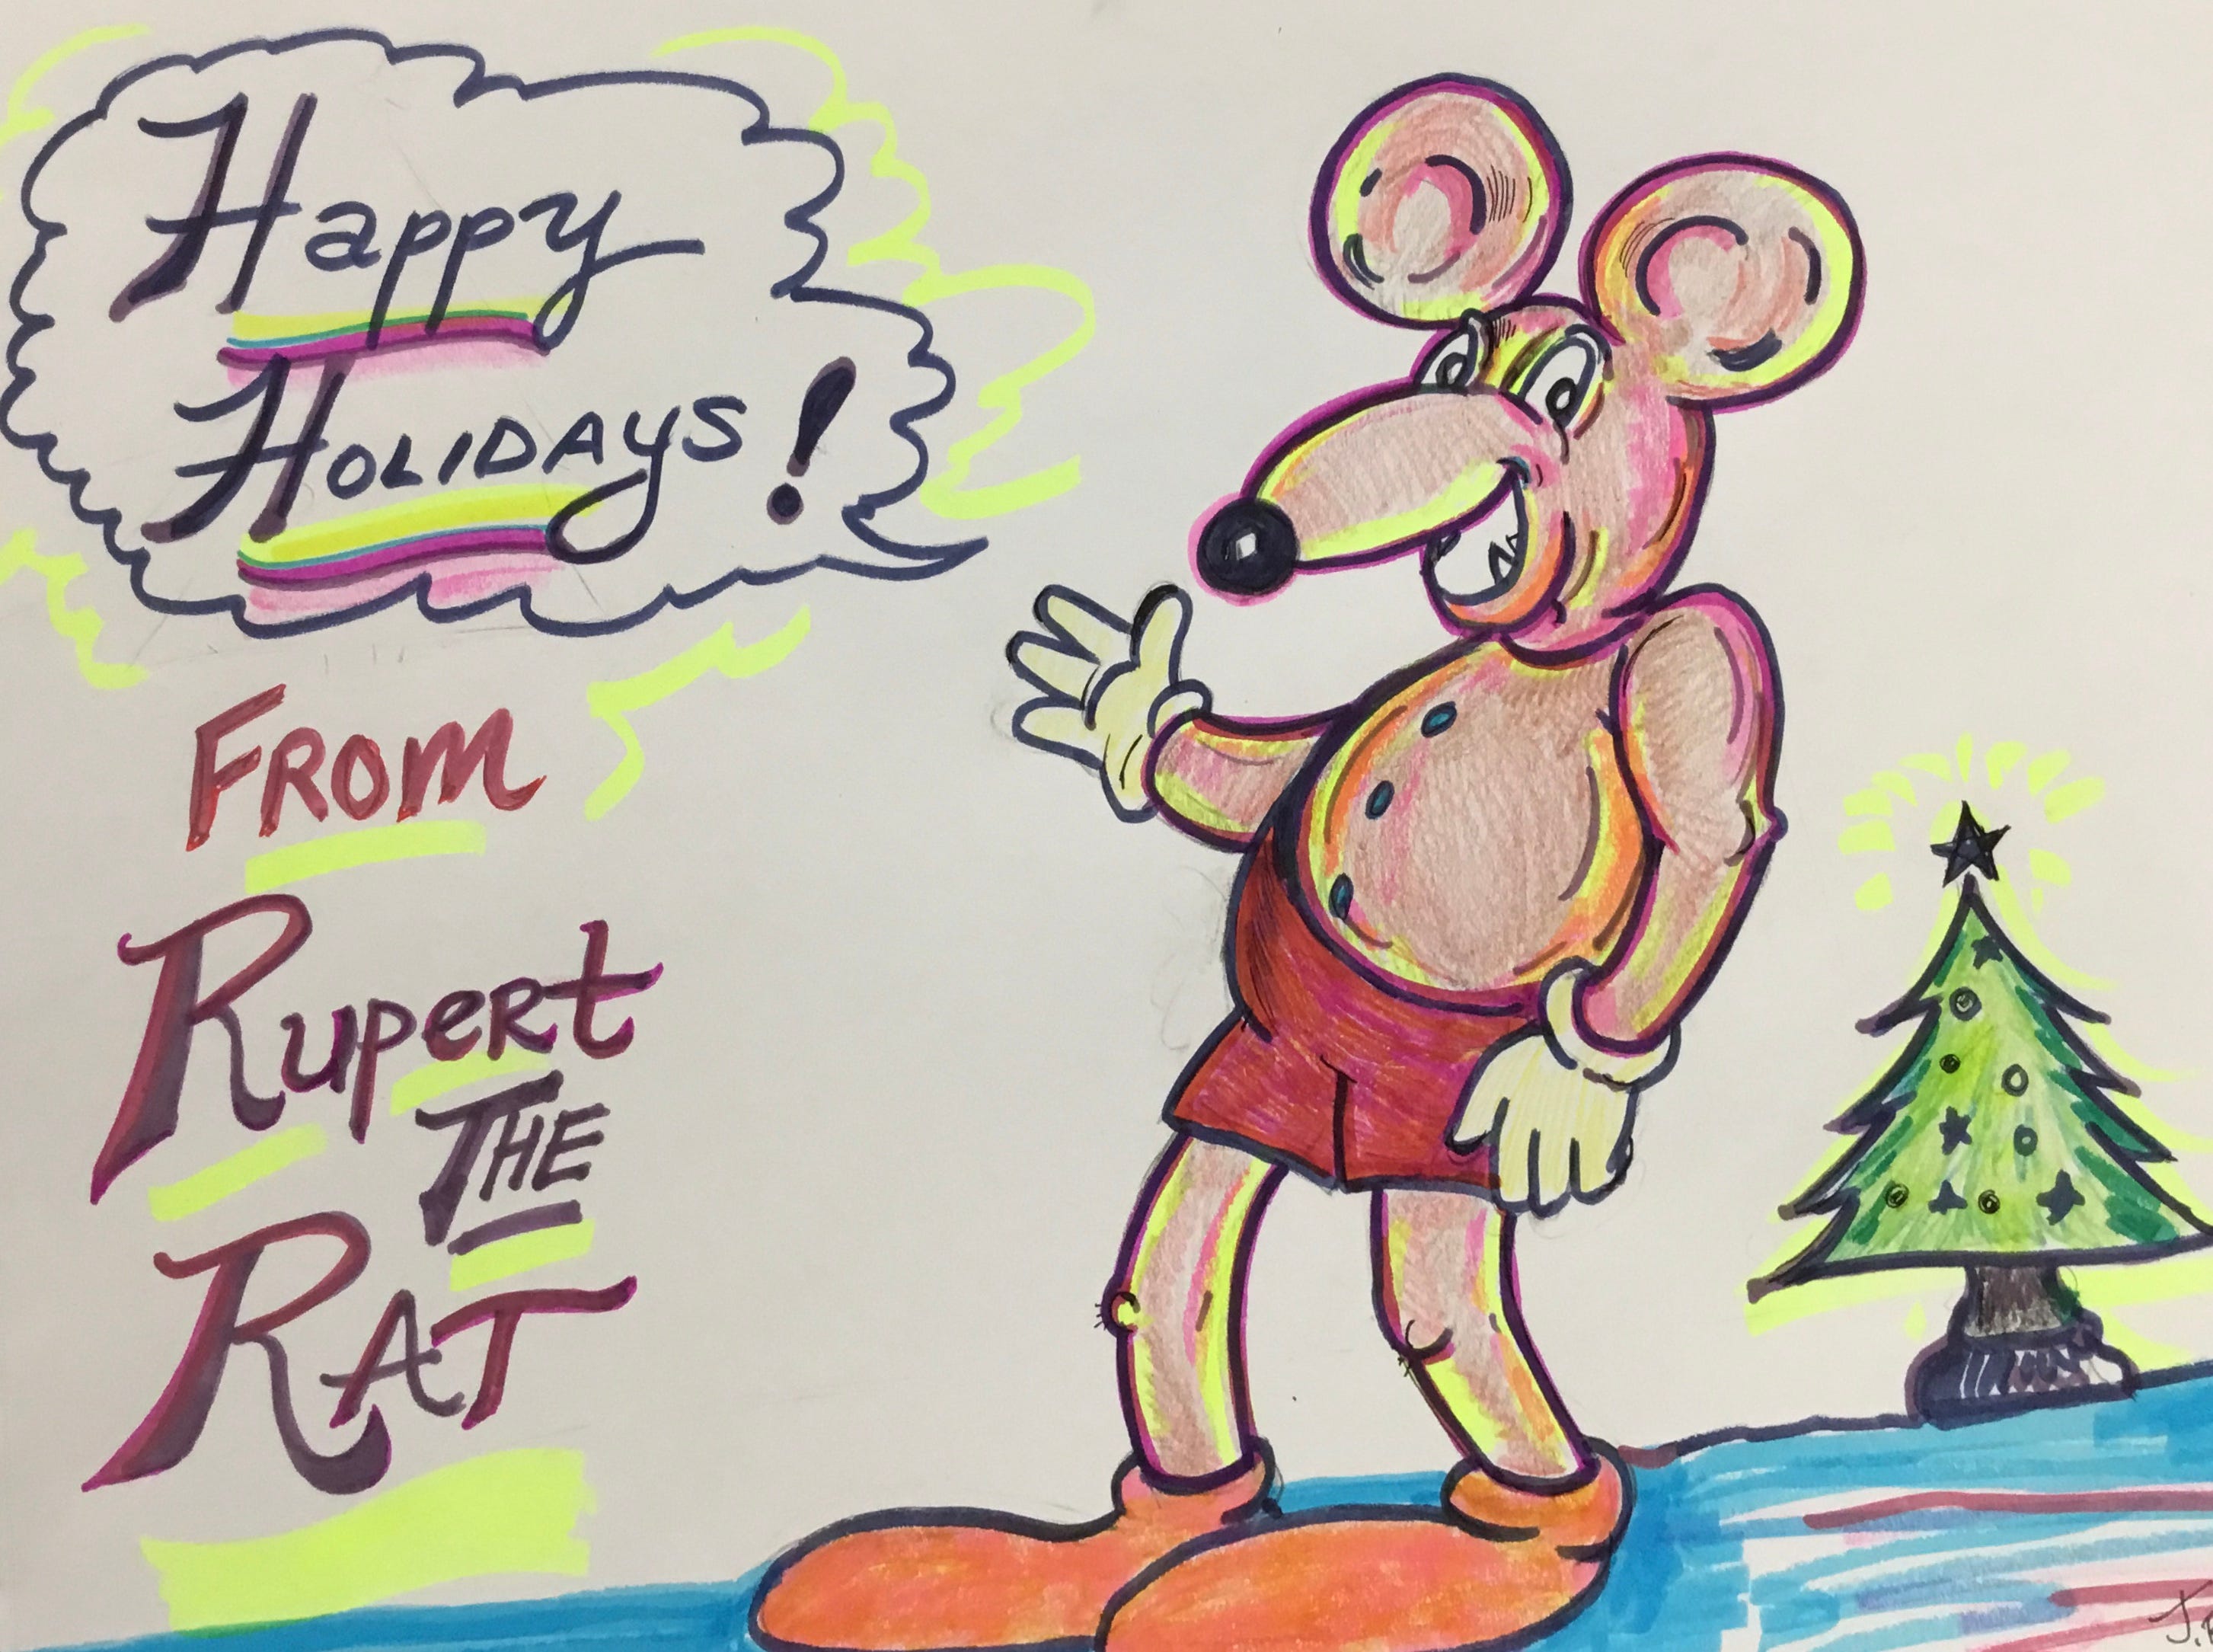 Happy
HOLIDAYS!
FROM
Rupert
THE
RAT
J.